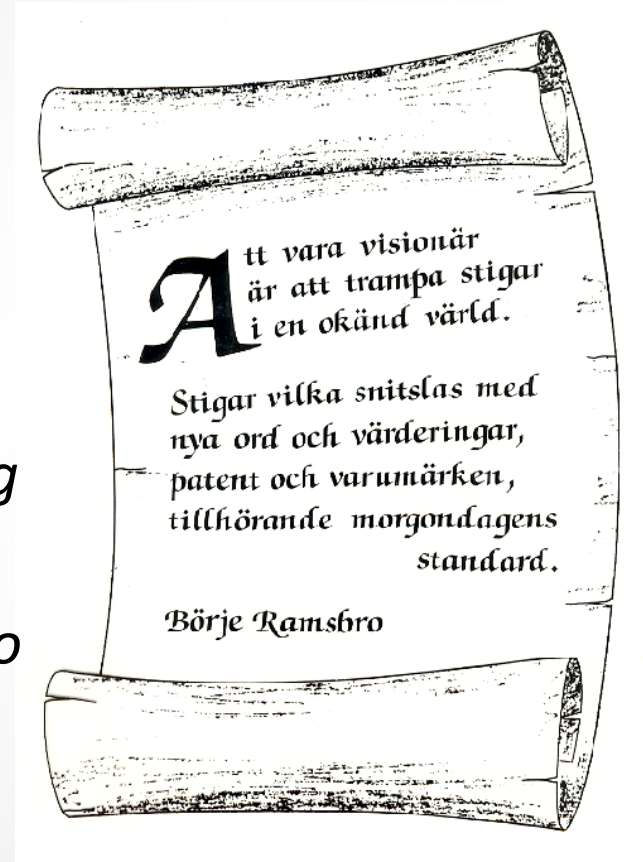 Att vara visionär
är att trampa stigar
i en okänd värld.
Stigar vilka snitslas med
nya ord och värderingar,
patent och varumärken,
tillhörande morgondagens
standard.
Börje Ramsbro
g
o